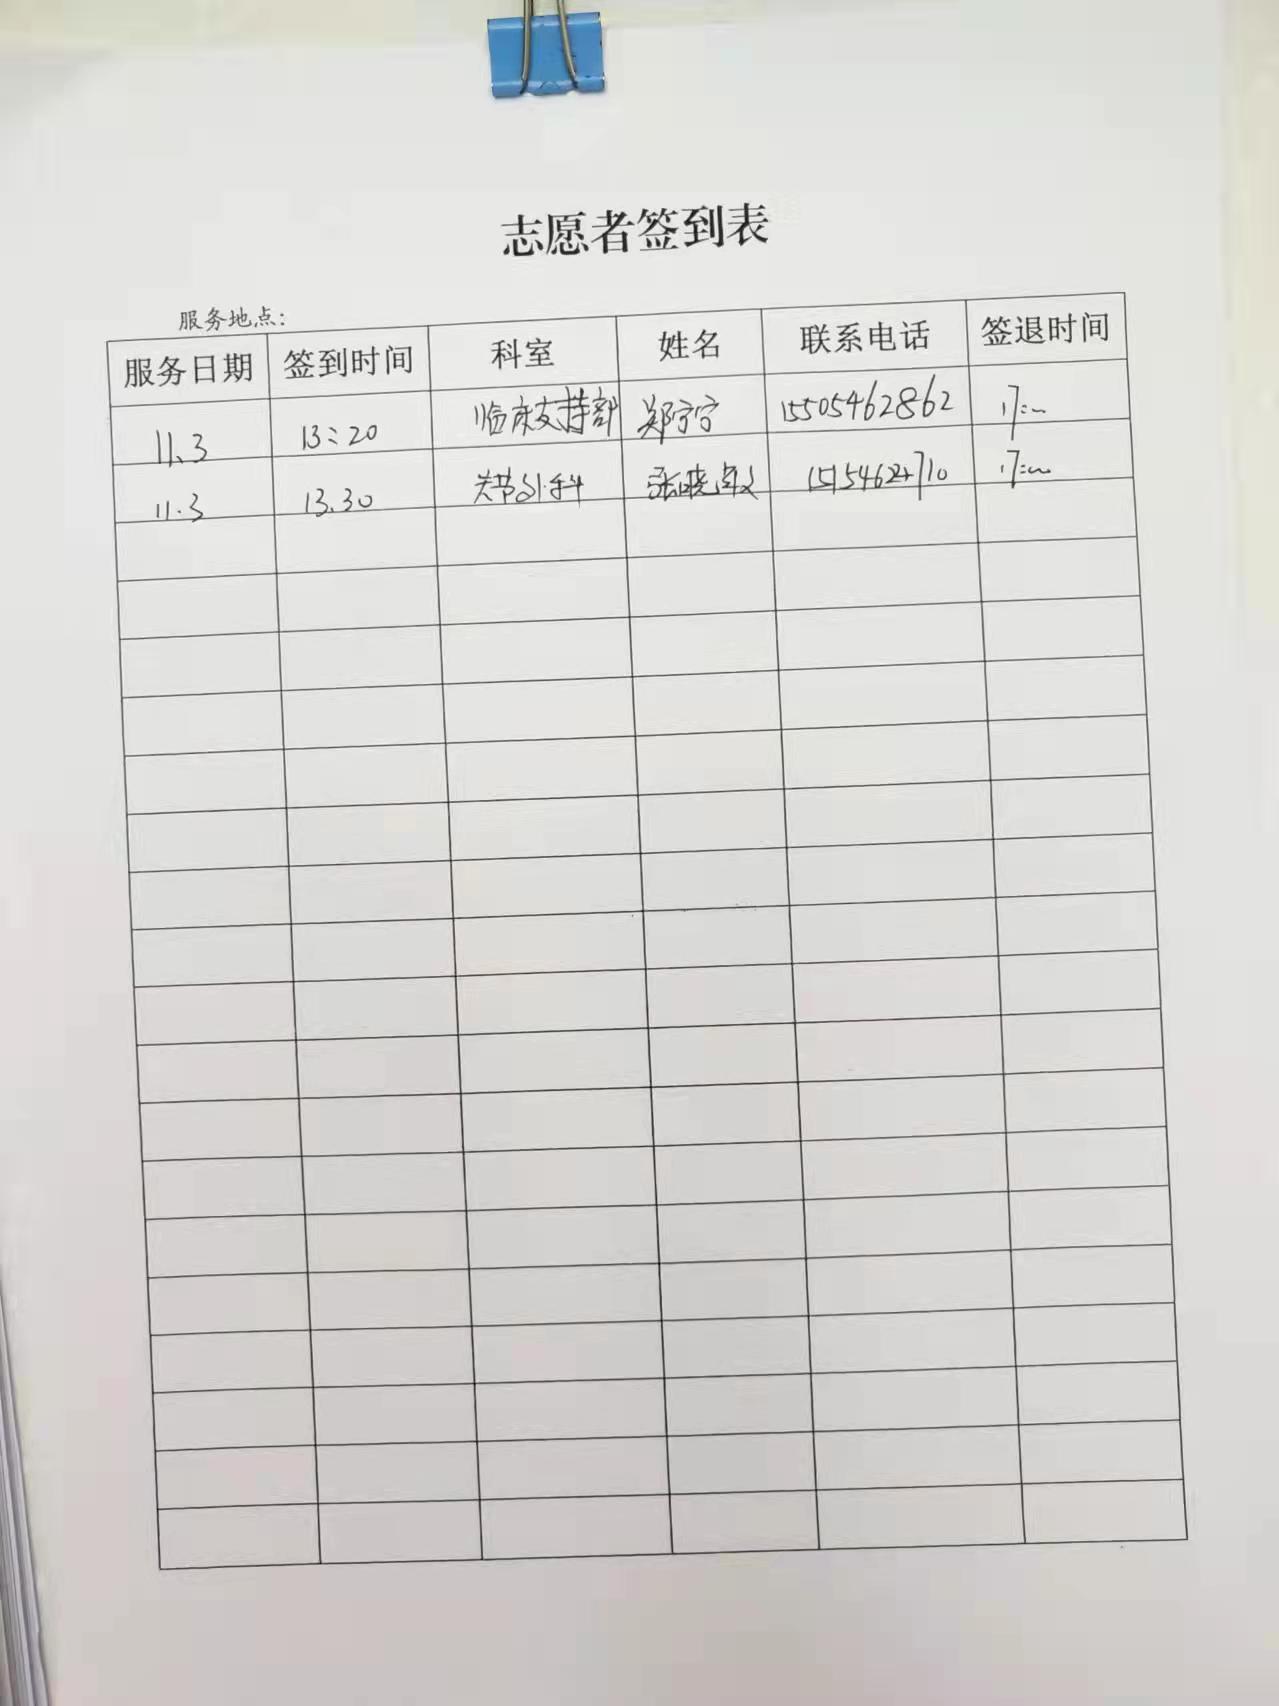 志愿者签到表
服务地点:
服务日期 签到时间 科室 姓名 联系电话 签退时间
11.3 13:20 临床支持部 郑宁宁 15505462862 17:00
11.3 13.30 关节外科 张晓 17:00